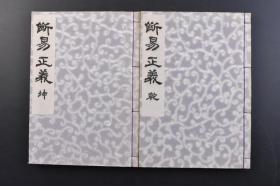 断易正義 乾
断易正義 坤